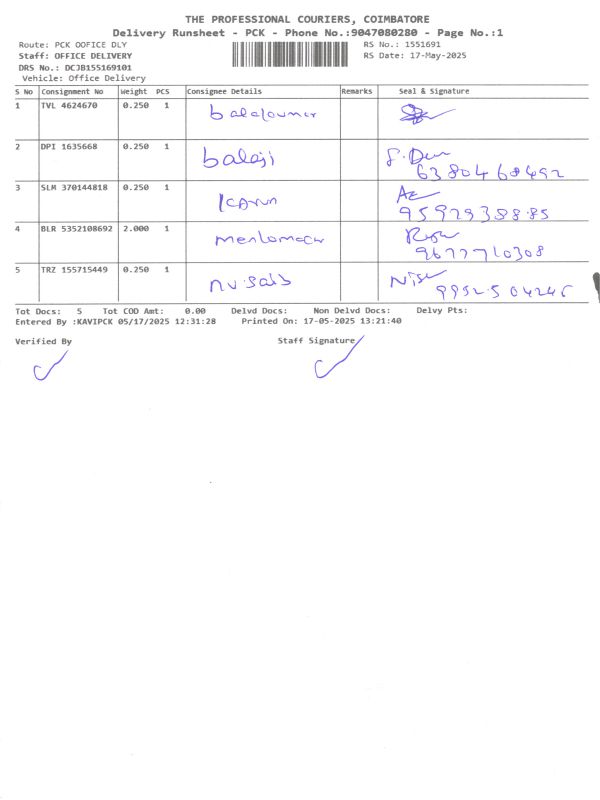 THE PROFESSIONAL COURIERS, COIMBATORE
Delivery Runsheet - PCK - Phone No.:9047080280 - Page No.:1
Route: PCK OOFICE DLY
RS No.: 1551691
Staff: OFFICE DELIVERY
RS Date: 17-May-2025
DRS No.: DCJB155169101
Vehicle: Office Delivery
S No Consignment No Weight PCS Consignee Details Remarks Seal & Signature
1 TVL 4624670 0.250 1
2 DPI 1635668 0.250 1 balaji
6380468492
3 SLM 370144818 0.250 1 Karun
4 BLR 5352108692 2.000 1
9677710308
5 TRZ 155715449 0.250 1
Tot Docs: 5 Tot COD Amt: 0.00 Delvd Docs: Non Delvd Docs: Delvy Pts:
Entered By :KAVIPCK 05/17/2025 12:31:28 Printed On: 17-05-2025 13:21:40
Verified By Staff Signature